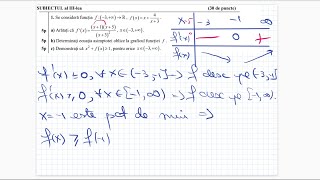 SUBIECTUL al III-lea (30 de puncte)
1. Se consideră funcția f:(-3,∞)→ℝ, f(x)=x+4/(x+3).
5p a) Arătați că f'(x)=(x+1)(x+5)/(x+3)², x∈(-3,∞).
5p b) Determinați ecuația asimptotei oblice la graficul funcției f.
5p c) Demonstrați că x²+f(x)≥1, pentru orice x∈(-3,∞).
x -3 -1 ∞
f'(x) - 0 +
f(x)
f'(x)≤0, ∀x∈(-3,-1] → f desc pe (-3,-1]
f'(x)≥0, ∀x∈[-1,∞) → f desc pe [-1,∞).
x=-1 este pct de min ⇒
f(x) ≥ f(-1)